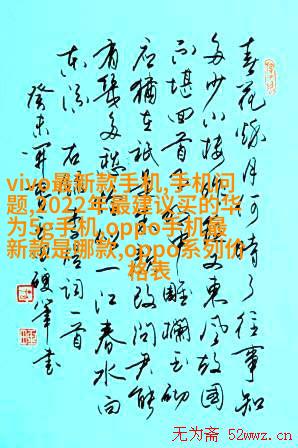 春花秋月何时了往事知
多少小楼又东风故国
不堪回首中雕栏玉砌
应犹在改问君能
有几多愁一江春水向
东流 右词一首
癸未军书
vivo最新款手机,手机问
题,2022年最建议买的华
为5g手机,oppo手机最
新款是哪款,oppo系列价
格表
无为斋 52wwz.cn